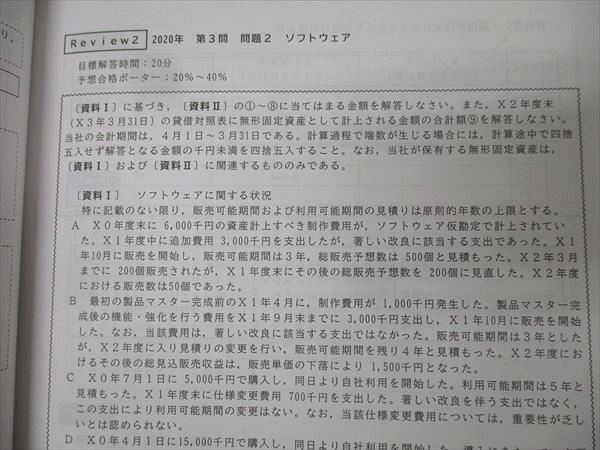 Review2 2020年 第3問 問題2 ソフトウェア
目標解答時間：20分
予想合格ボーダー：20％～40％
〔資料Ⅰ〕に基づき，〔資料Ⅱ〕の①～⑧に当てはまる金額を解答しなさい。また，X2年度末
（X3年3月31日）の貸借対照表に無形固定資産として計上される金額の合計額⑨を解答しなさい。
当社の会計期間は，4月1日～3月31日である。計算過程で端数が生じる場合には，計算途中で四捨
五入せず解答となる金額の千円未満を四捨五入すること。なお，当社が保有する無形固定資産は，
〔資料Ⅰ〕および〔資料Ⅱ〕に関連するもののみである。
〔資料Ⅰ〕 ソフトウェアに関する状況
特に記載のない限り，販売可能期間および利用可能期間の見積りは原則的年数の上限とする。
A X0年度末に 6,000千円の資産計上すべき制作費用が，ソフトウェア仮勘定で計上されてい
た。X1年度中に追加費用 3,000千円を支出したが，著しい改良に該当する支出であった。X1
年10月に販売を開始し，販売可能期間は3年，総販売予想数は 500個と見積もった。X2年3月
までに 200個販売されたが，X1年度末にその後の総販売予想数を 200個に見直した。X2年度
における販売数は50個であった。
B 最初の製品マスター完成前のX1年4月に，制作費用が 1,000千円発生した。製品マスター完
成後の機能・強化を行う費用をX1年9月末までに 3,000千円支出し，X1年10月に販売を開始
した。なお，当該費用は，著しい改良に該当する支出ではなかった。販売可能期間は3年とした
が，X2年度に入り見積りの変更を行い，販売可能期間を残り4年と見積もった。X2年度にお
けるその後の総見込販売収益は，販売単価の下落により 1,500千円となった。
C X0年7月1日に 5,000千円で購入し，同日より自社利用を開始した。利用可能期間は5年と
見積もった。X1年度末に仕様変更費用 700千円を支出した。著しい改良を伴う支出ではなく，
この支出により利用可能期間の変更はない。なお，当該仕様変更費用については，重要性が乏し
いとは認められない。
D X0年4月1日に15,000千円で購入し，同日より自社利用を開始した。